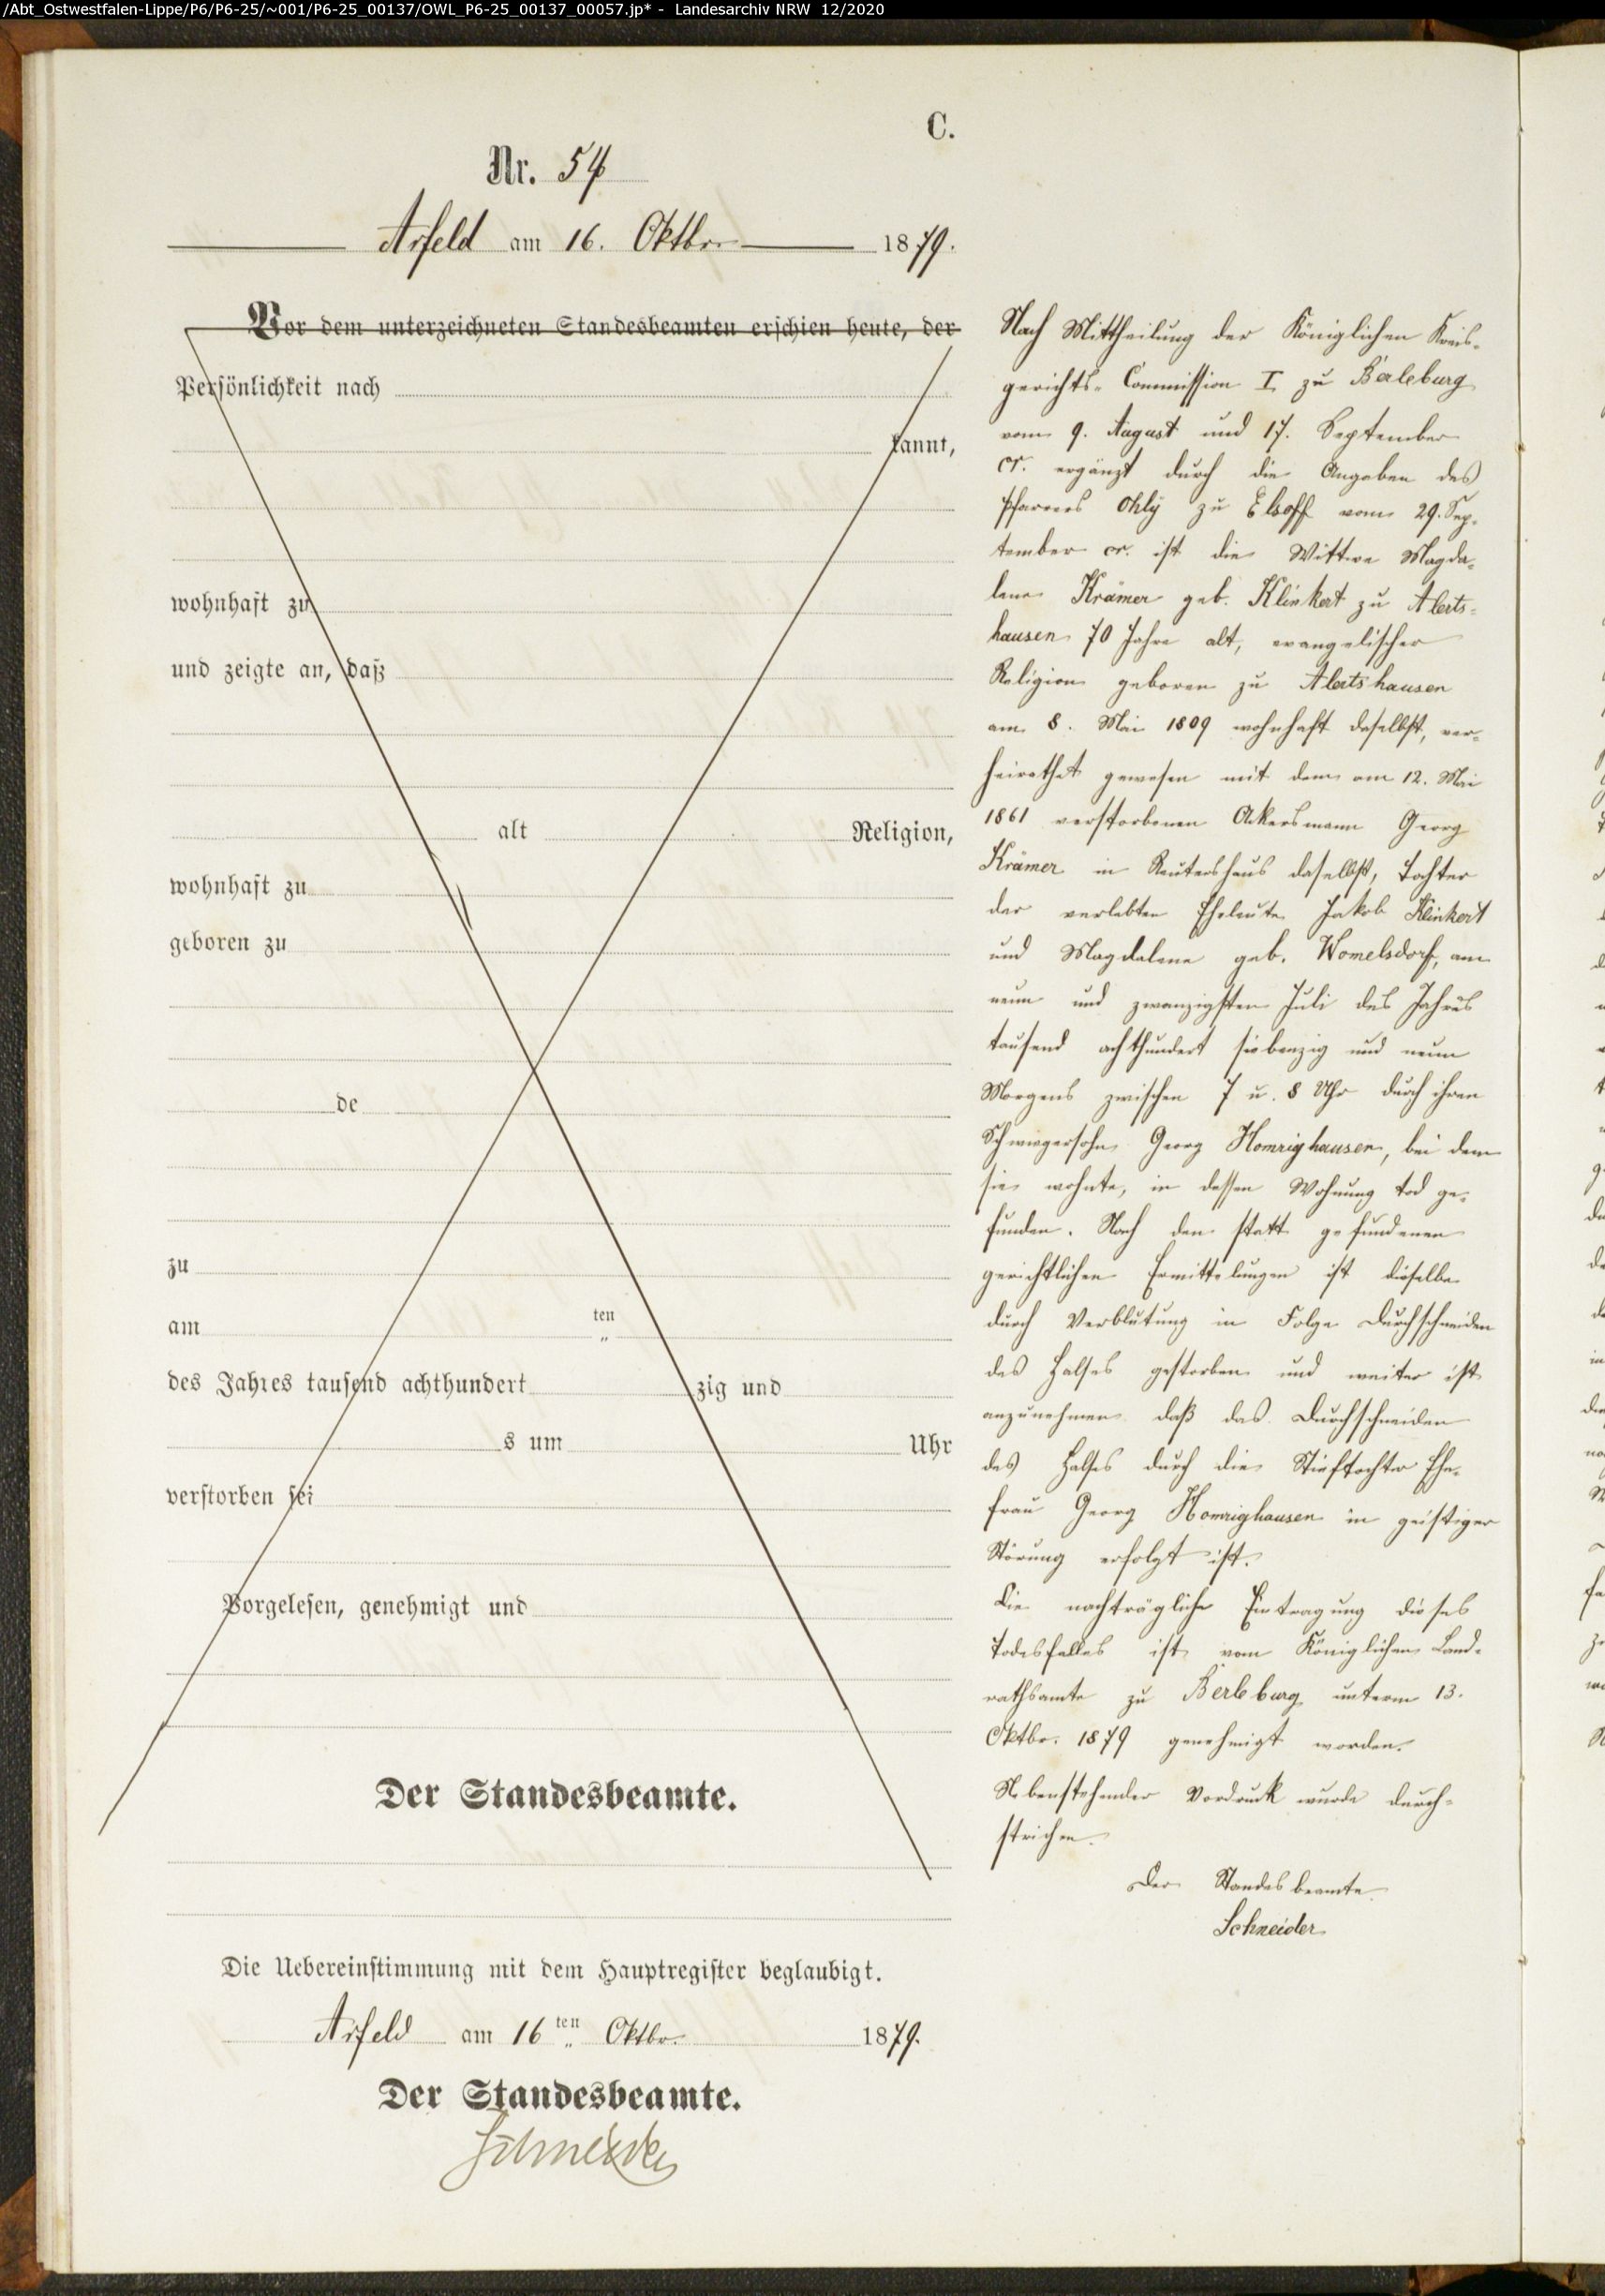 /Abt_Ostwestfalen-Lippe/P6/P6-25/~001/P6-25_00137/OWL_P6-25_00137_00057.jp* - Landesarchiv NRW 12/2020
C.
Nr. 54
Arfeld am 16. Oktbr. 1879.
Vor dem unterzeichneten Standesbeamten erschien heute, der
Persönlichkeit nach
kannt,
wohnhaft zu
und zeigte an, daß
alt Religion,
wohnhaft zu
geboren zu
de
zu
am ten
des Jahres tausend achthundert zig und
s um Uhr
verstorben sei
Vorgelesen, genehmigt und
Der Standesbeamte.
Die Uebereinstimmung mit dem Hauptregister beglaubigt.
Arfeld am 16ten Oktbr. 1879.
Der Standesbeamte.
Schneider
Nach Mittheilung der Königlichen Kreis-
gerichts-Commission I. zu Berleburg
vom 9. August und 17. September
cr. ergänzt durch die Angaben des
Pfarrers Ohly zu Elsoff vom 29. Sep-
tember cr. ist die Wittwe Magda-
lene Krämer geb. Klinkert zu Alerts-
hausen 70 Jahre alt, evangelischer
Religion geboren zu Alertshausen
am 8. Mai 1809 wohnhaft daselbst, ver-
heirathet gewesen mit dem am 12. Mai
1861 verstorbenen Ackersmann Georg
Krämer in Reutershaus daselbst, Tochter
der verlebten Eheleute Jakob Klinkert
und Magdalene geb. Womelsdorf, am
neun und zwanzigsten Juli des Jahres
tausend achthundert siebenzig und neun
Morgens zwischen 7 u. 8 Uhr durch ihren
Schwiegersohn Georg Homrighausen, bei dem
sie wohnte, in dessen Wohnung tod ge-
funden. Nach den statt gefundenen
gerichtlichen Ermittelungen ist dieselbe
durch Verblutung in Folge Durchschneiden
des Halses gestorben und weiter ist
anzunehmen daß das Durchschneiden
des Halses durch die Stieftochter Ehe-
frau Georg Homrighausen in geistiger
Störung erfolgt ist.
Die nachträgliche Eintragung dieses
Todesfalles ist vom Königlichen Land-
rathsamte zu Berleburg unterm 13.
Oktbr. 1879 genehmigt worden.
Nebenstehender Vordruck wurde durch-
strichen.
Der Standesbeamte.
Schneider